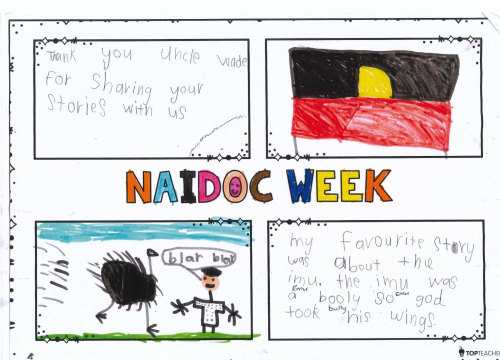 Thank you Uncle Wade
For Sharing your
Stories with us
NAIDOC WEEK
blar blar
my favourite story
was about the
imu. the imu was
Emu
a booly so god
Emu
took his wings.
bully
TOPTEACHE